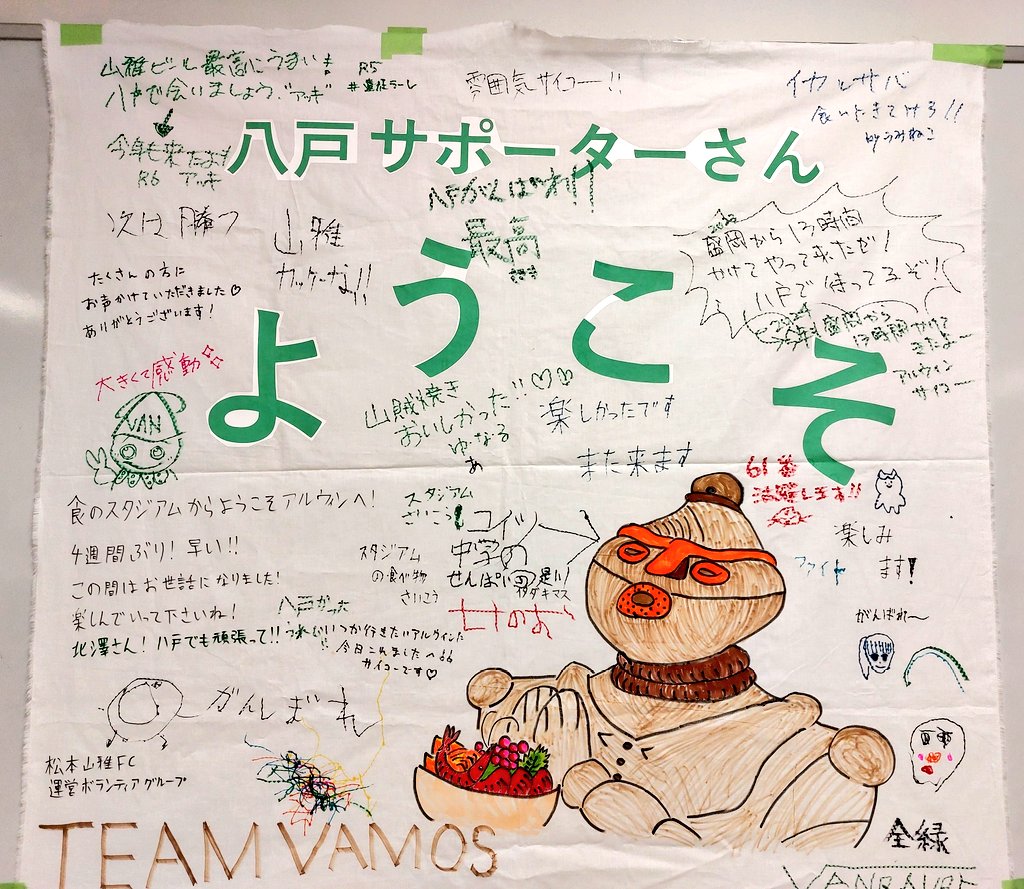 山雅ビール最高にうまい!
八戸で会いましょう。"アッキ"
R5
雰囲気サイコー!!
イカとサバ
食いたきてけろ!!
byうみねこ
八戸サポーターさん
今年も来たよ!!
R6 アッキ
がんばれ!!
次は勝つ
山雅
カッケーな!!
最高
盛岡から13時間
かけてやって来たぜ!
八戸で待ってるぞ!
たくさんの方に
お声かけていただきました♡
ありがとうございます!
ようこそ
2024
盛岡から
13時間かけて
きたよ〜
アルウィン
サイコ〜
大きくて感動
VAN
山賊焼き
おいしかった!!♡♡
楽しかったです
また来ます
61番
食のスタジアムからようこそアルウィンへ!
スタジアム
さいこう!
コイツ
中学の
せんぱい
楽しみ
ます!
ファイト
4週間ぶり!早い!!
この間はお世話になりました!
楽しんでいって下さいね!
北澤さん!八戸でも頑張って!!
スタジアム
の食べ物
さいこう
八戸かった
うれしい
いつか行きたいアルウィンに
今日これました^^
サイコーです♡
がんばれ〜
がんばれ
松本山雅FC
運営ボランティアグループ
TEAM VAMOS
全緑
VANRAURE